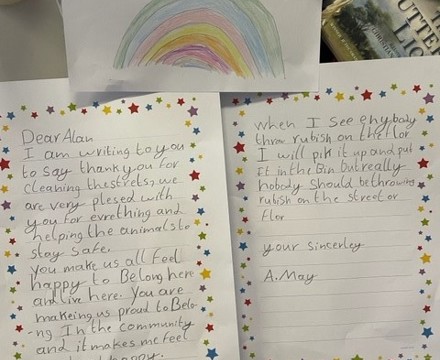 UTTE
Dear Alan
I am writing to you
to say thank you for
cleaning thestrets, we
are very plesed with
you for evrething and
helping the animals to
stay safe.
you make us all feel
happy to Belong here
and live here. You are
makeing us proud to Belo-
-ng In the community
and it makes me feel
happy.
when I see enybody
throw rubish on the flor
I will pik it up and put
it in the Bin but really
nobody should be throwing
rubish on the street or
flor
your sincerley
A. May